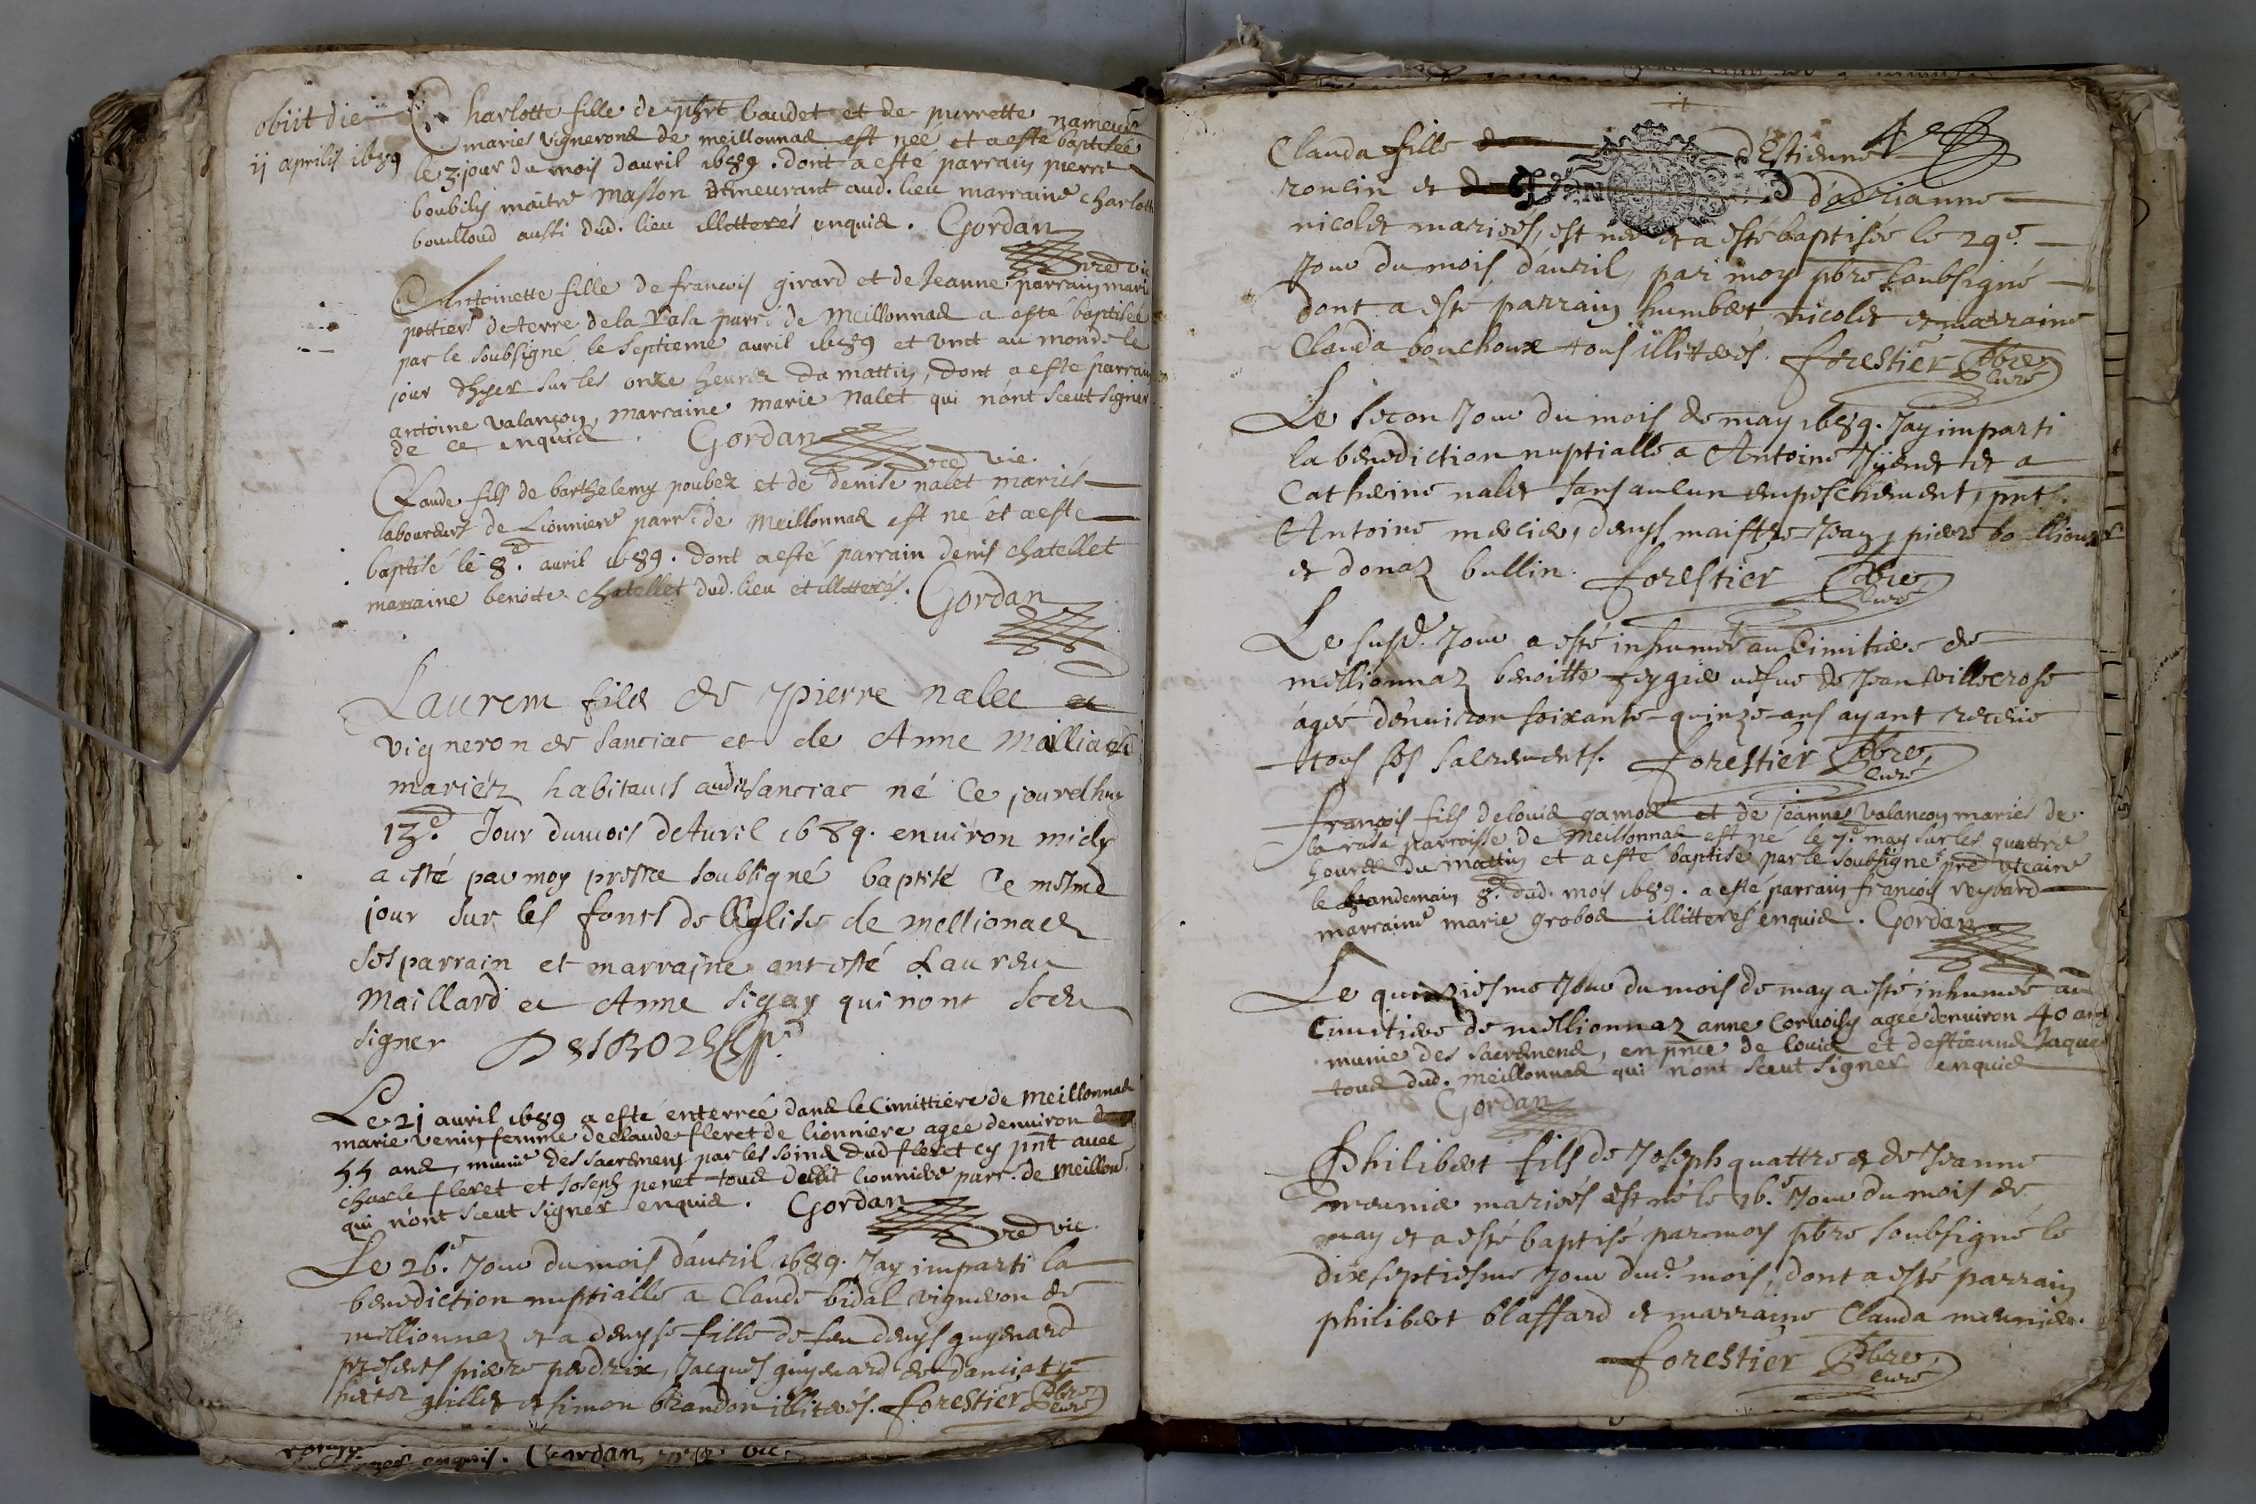 obiit die
ij aprilis 1689
Charlotte fille de phrt baudet et de purrette
maries vignerons de meillonnas est nee et a esté baptisée
le 3 jour du mois davril 1689. dont a esté parrain pierre
boubilis maitre masson demeurant aud. lieu marraine charlotte
bouilloud aussi dud. lieu illitterés enquis. Gordan
pred vic
Antoinette fille de francois girard et de Jeanne parrain mari
pottiers de terre de la Rasa parr. de Meillonnas a esté baptisée
par le soubsigné le septieme avril 1689 et vint au monde le
jour dhyer sur les onze heures du mattin, dont a esté parrain
antoine valançon, marraine marie nalet qui n'ont sceut signer
de ce enquis. Gordan
pred vic.
Claude fils de barthelemy poubez et de denise nalet mariés
laboureurs de Lionniere parr. de Meillonnas est né et a esté
baptisé le 8e. avril 1689. dont a esté parrain denis chatellet
marraine benoite chatellet dud. lieu et illitterés. Gordan
Laurem fils de Pierre nalee et
vigneron de sanciat et de Anne Mailliard
mariéz habitants audit sanciac né Ce jourdhuy
13e. Jour du mois de Avril 1689. environ midy
a esté par moy prestre soubsigné baptisé Ce mesme
jour sur les fonts de l'Eglise de mellionas
Ses parrain et marrayne ont esté Laurem
Maillard et Anne sigay qui n'ont sceu
signer
Le 21 avril 1689 a esté enterrée dans le Cimittiere de Meillonnas
marie venin femme de claude fleret de lionniere agee denviron
55 ans, munie des sacremens par les soins dud fleret cy pnt avec
charle fleret et Joseph penet tous dudit lionniere parr. de Meillon.
qui n'ont sceut signer enquis. Gordan
pred vic.
Le 26e. Jour du mois d'avril 1689. Jay imparti la
benediction nuptialle a Claude bidal vigneron de
millionnaz et a denyse fille de feu denys guyenard
presents pierre perdrix, Jacques guyenard de danciat
gillet et simon brandon illiterés. forestier pbre
curé
enquis. Gordan pred. vic.
Clauda fille d'Estienne
roulin et d'adrianne
nicolet mariés, est née et a esté baptisée le 29e.
Jour du mois d'avril, par moy pbre soubsigné
dont a esté parrain humbert nicolet et marraine
Clauda bouchoux tous illiterés. forestier pbre
curé
Le secon Jour du mois de may 1689. Jay imparti
la benediction nuptialle a Antoine Juenet et a
Catherine nalet sans aulcun empeschement, pnts.
Antoine mercier, denys maistre Jean, pierre bollioux
et donaz bullin. forestier pbre
curé
Le susd. Jour a esté inhumée au Cimitiere de
millionnaz benoitte feygier vefve de Jean villerose
âgée d'environ soixante-quinze ans ayant receue
tous ses sacrements. forestier pbre
curé
françois fils de louis gamod et de jeanne valançon mariés de
la rasa parroisse de Meillonnas est né le 7e. may sur les quattre
heures du mattin et a esté baptisé par le soubsigné pred vicaire
le landemain 8e. dud. mois 1689. a esté parrain françois reybard
marraine marie grobod illitterés enquis. Gordan
Le quinziesme Jour du mois de may a esté inhumée au
Cimitiere de millionnaz anne Corvoisy agee denviron 40 ans
munie des sacremens, en pnce de louis et destienne Jaque
tous dud. meillonnas qui n'ont sceut signer enquis
Gordan
Philibert fils de Joseph quattre & de Jeanne
meunier mariés est né le 16e. Jour du mois de
may et a esté baptisé par moy pbre soubsigné le
dixseptiesme Jour dud. mois, dont a esté parrain
philibert blaffard et marraine Clauda meunier.
forestier pbre
curé